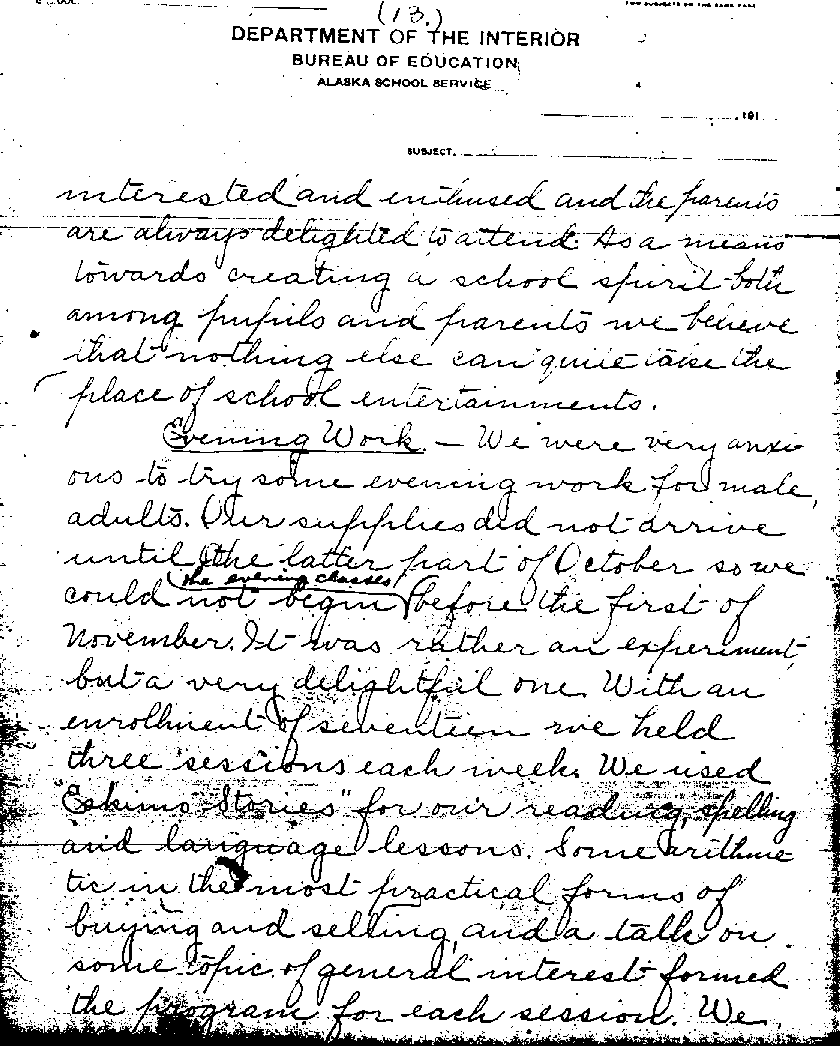 (13.)
DEPARTMENT OF THE INTERIOR
BUREAU OF EDUCATION
ALASKA SCHOOL SERVICE
, 191
SUBJECT.
interested and enthused and the parents
are always delighted to attend. As a means
towards creating a school spirit both
among pupils and parents we believe
that nothing else can quite take the
place of school entertainments.
Evening Work — We were very anxi
ous to try some evening work for male
adults. Our supplies did not arrive
until the latter part of October so we
the evening classes
could not begin before the first of
November. It was rather an experiment,
but a very delightful one. With an
enrollment of seventeen we held
three sessions each week. We used
"Eskimo Stories" for our reading, spelling
and language lessons. Some arithme
tic in the most practical forms of
buying and selling, and a talk on
some topic of general interest formed
the program for each session. We